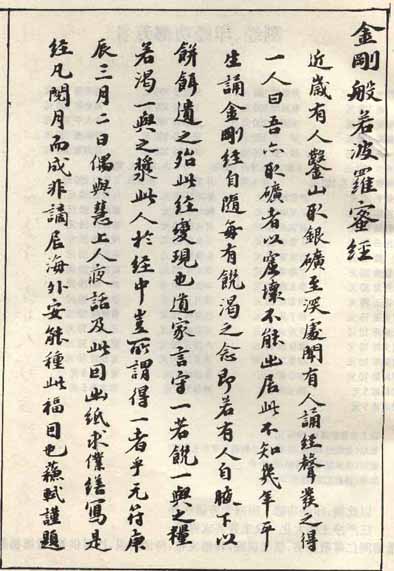 金剛般若波羅蜜經
近歲有人鑿山取銀礦至深處聞有人誦經聲發之得
一人曰吾亦取礦者以窟壞不能出居此不知幾年平
生誦金剛經自隨每有飢渴之念即若有人自腋下以
餅餌遺之殆此經變現也道家言守一若飢一與之糧
若渴一與之漿此人於經中豈所謂得一者乎元符庚
辰三月二日偶與慧上人夜話及此因出紙求僕繕寫是
經凡閱月而成非謫居海外安能種此福田也蘇軾謹題